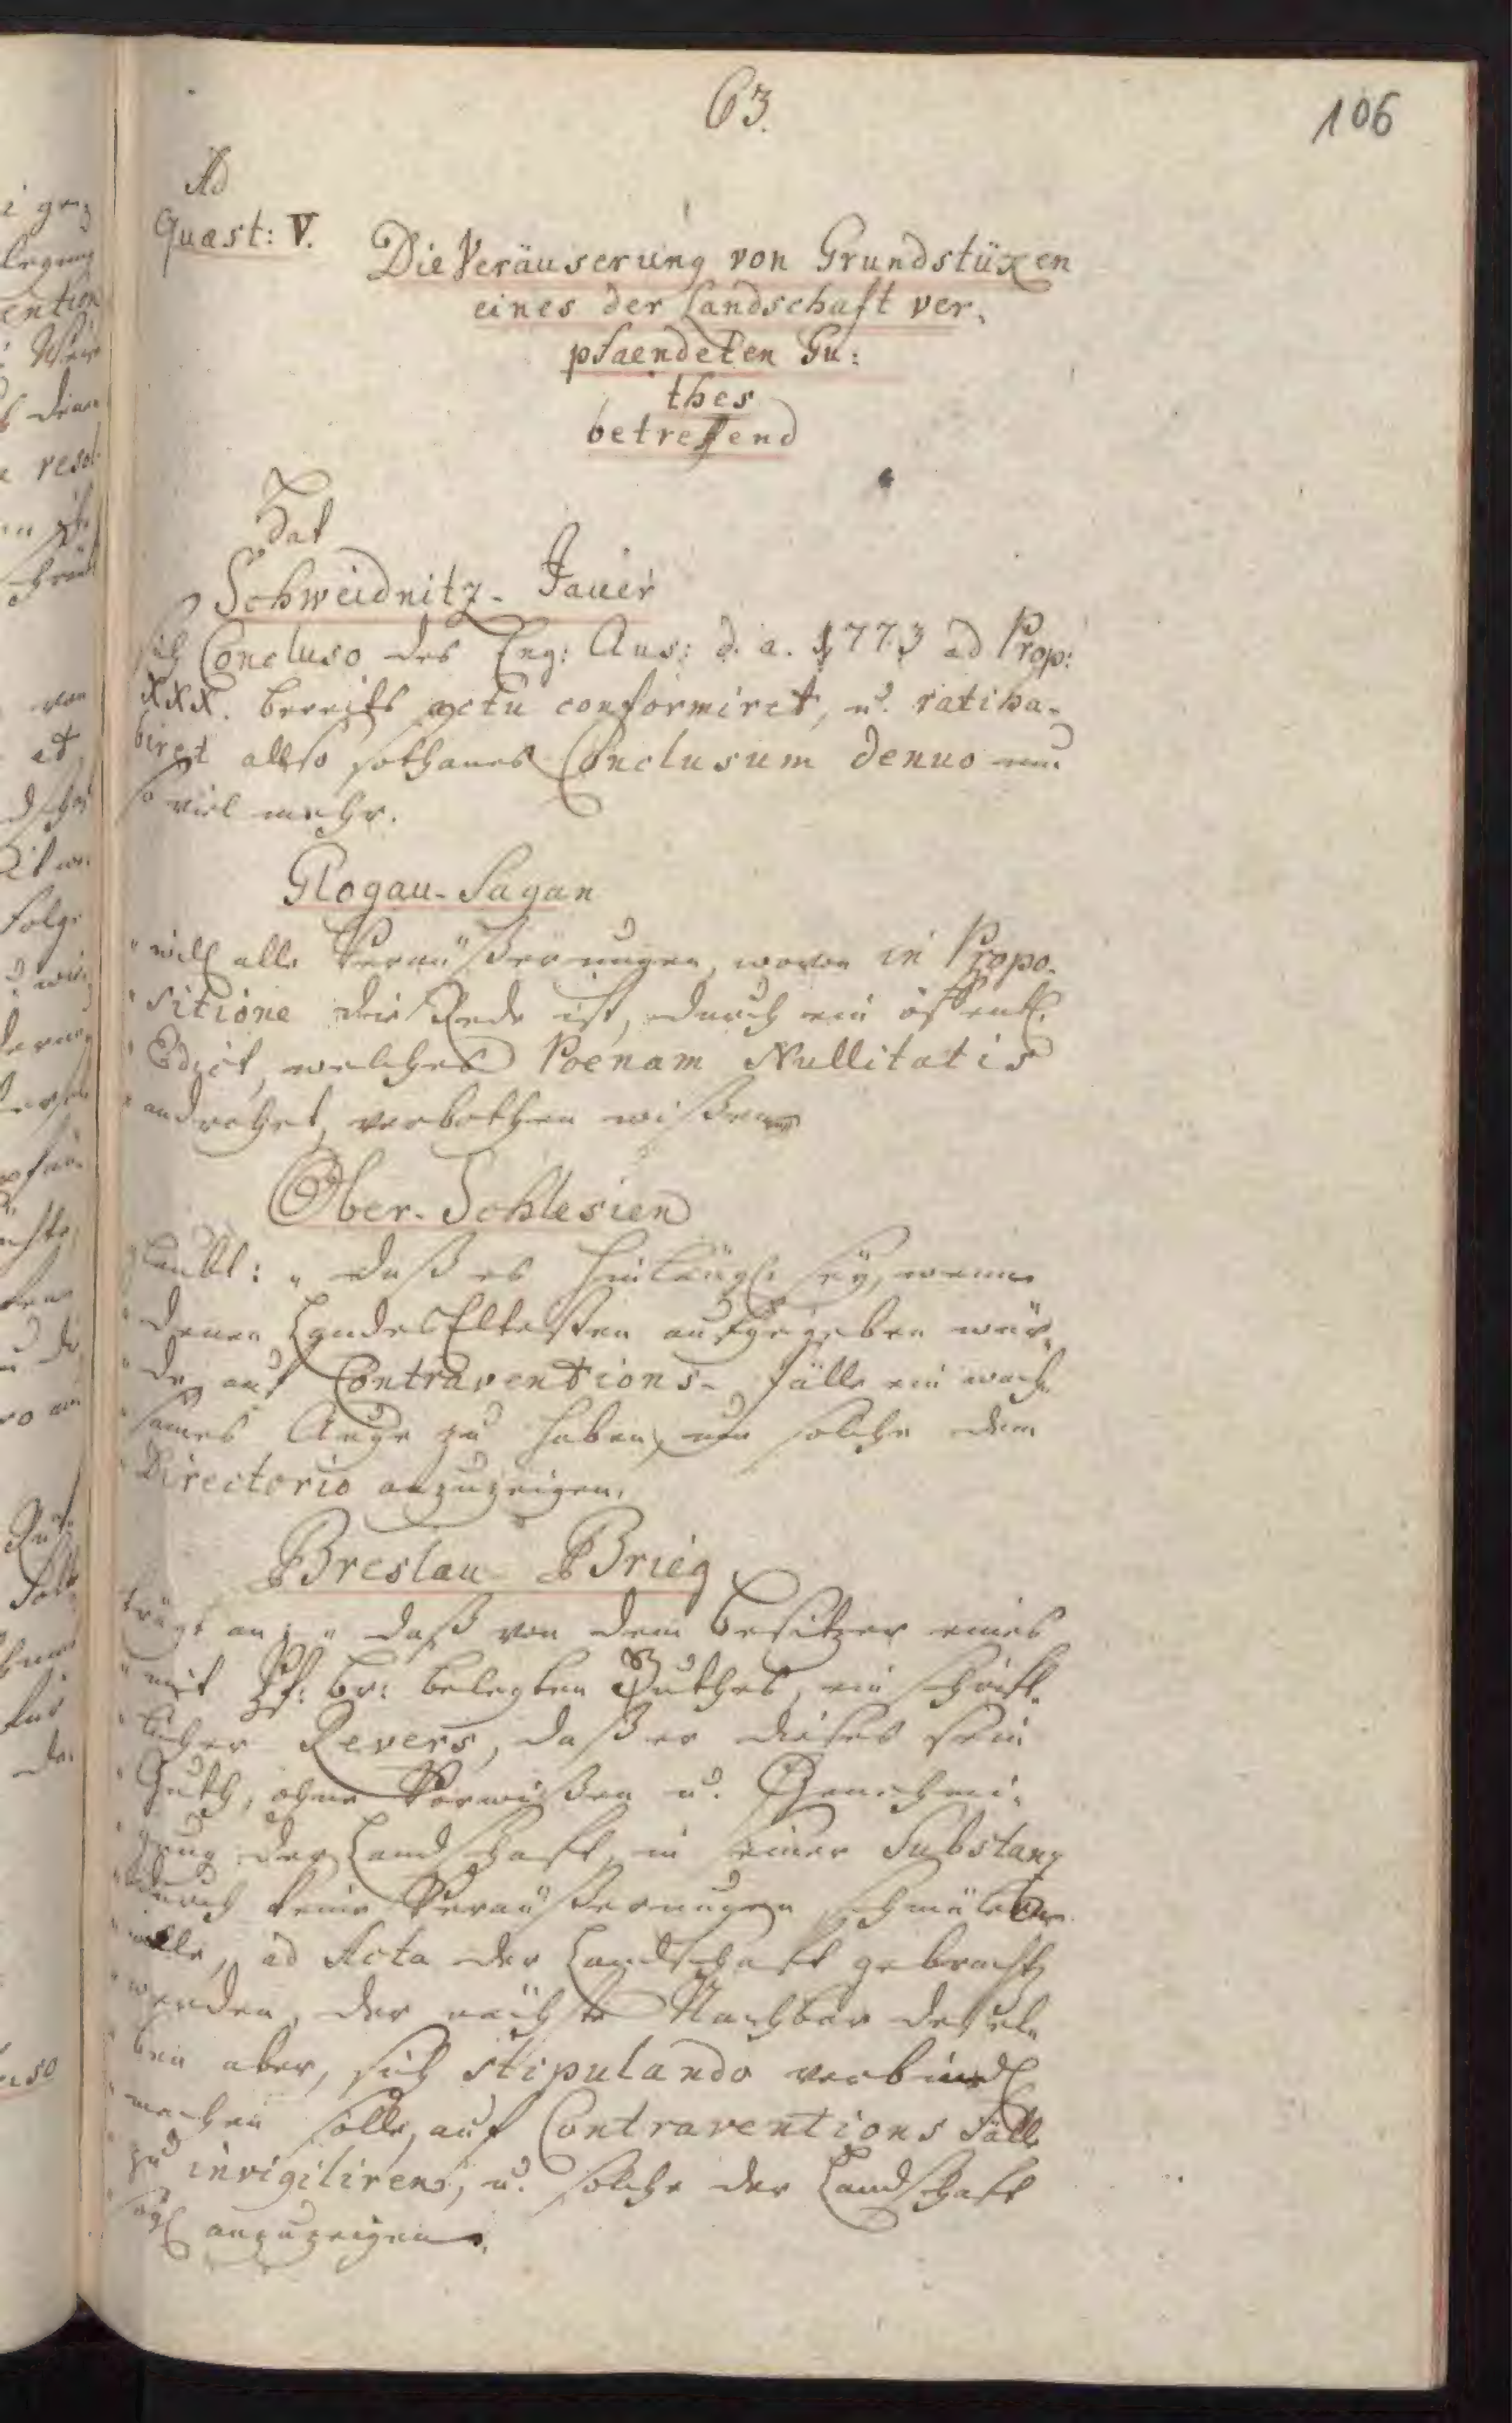 63.
106
Ad
Quæst: V.
Die Veräuserung von Grundstüxen
eines der Landschaft ver-
pfaendeten Gu:
thes
betreffend
Hat
Schweidnitz-Jauer
sich Concluso des Eng: Aus: d. a. 1773 ad Prop:
XXX. bereits actu conformiret, u. ratiha-
biret also sothanes Conclusum denuo um
so viel mehr.
Glogau-Sagan
" will alle Veräußerungen, wovon in Propo-
" sitione die Rede ist, durch ein öffentl.
" Edict, welches Poenam Nullitatis
" androhet, verbothen wißen
Ober-Schlesien
glaubt: " daß es hinlängl. sey, wenn
" denen LandesEltesten aufgegeben wür-
" de, auf Contraventions-fälle ein wach-
" sames Auge zu haben, um solche dem
" Directorio anzuzeigen.
Breslau-Brieg
trägt an: " daß von dem Besitzer eines
" mit Pf: br: belegten Guthes, ein schrift-
" licher Revers, daß er dieses sein
" Guth, ohne Vorwißen u. Genehmi-
" gung der Landschaft, in seiner Substanz
" durch keine Veräußerungen schmälern
" wolle, ad Acta der Landschaft gebracht
" werden, der nächste Nachbar deßel-
" ben aber, sich stipulando verbindl.
" machen solle, auf Contraventions Fälle
" zu invigiliren, u. solche der Landschaft
" sogl. anzuzeigen.